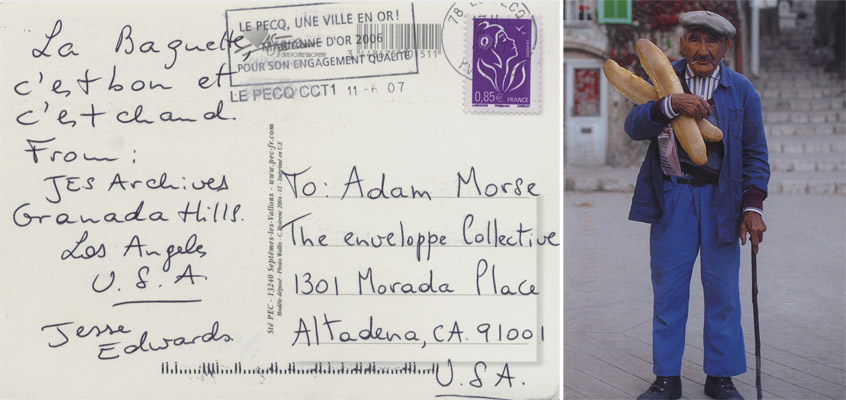 La Baguette
c'est bon et
c'est chaud.
From:
JES Archives
Granada Hills.
Los Angeles
U.S.A.
Jesse
Edwards
LE PECQ, UNE VILLE EN OR!
MARIANNE D'OR 2006
POUR SON ENGAGEMENT QUALITÉ
LE PECQ CCT1 11-6 07
78 LE PECQ
YN
0,85€ FRANCE
Sté PEC - 13240 Septèmes-les-Vallons - www.pec-fr.com
To: Adam Morse
The enveloppe Collective
1301 Morada Place
Altadena, CA. 91001
U.S.A.